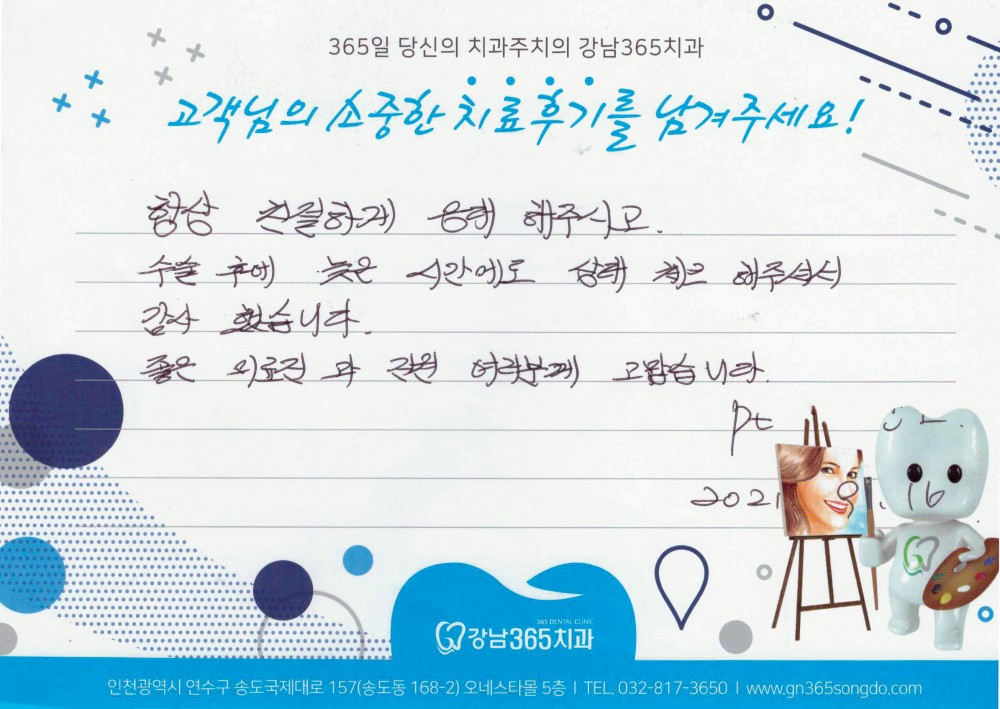 365일 당신의 치과주치의 강남365치과
고객님의 소중한 치료후기를 남겨주세요!
항상 친절하게 응대 해주시고.
수술 후에 늦은 시간에도 상태 체크 해주셔서
감사 했습니다.
좋은 의료진 과 직원 여러분께 고맙습니다.
Pt
2021 16
365 DENTAL CLINIC
강남365치과
인천광역시 연수구 송도국제대로 157(송도동 168-2) 오네스타몰 5층 I TEL. 032-817-3650 I www.gn365songdo.com